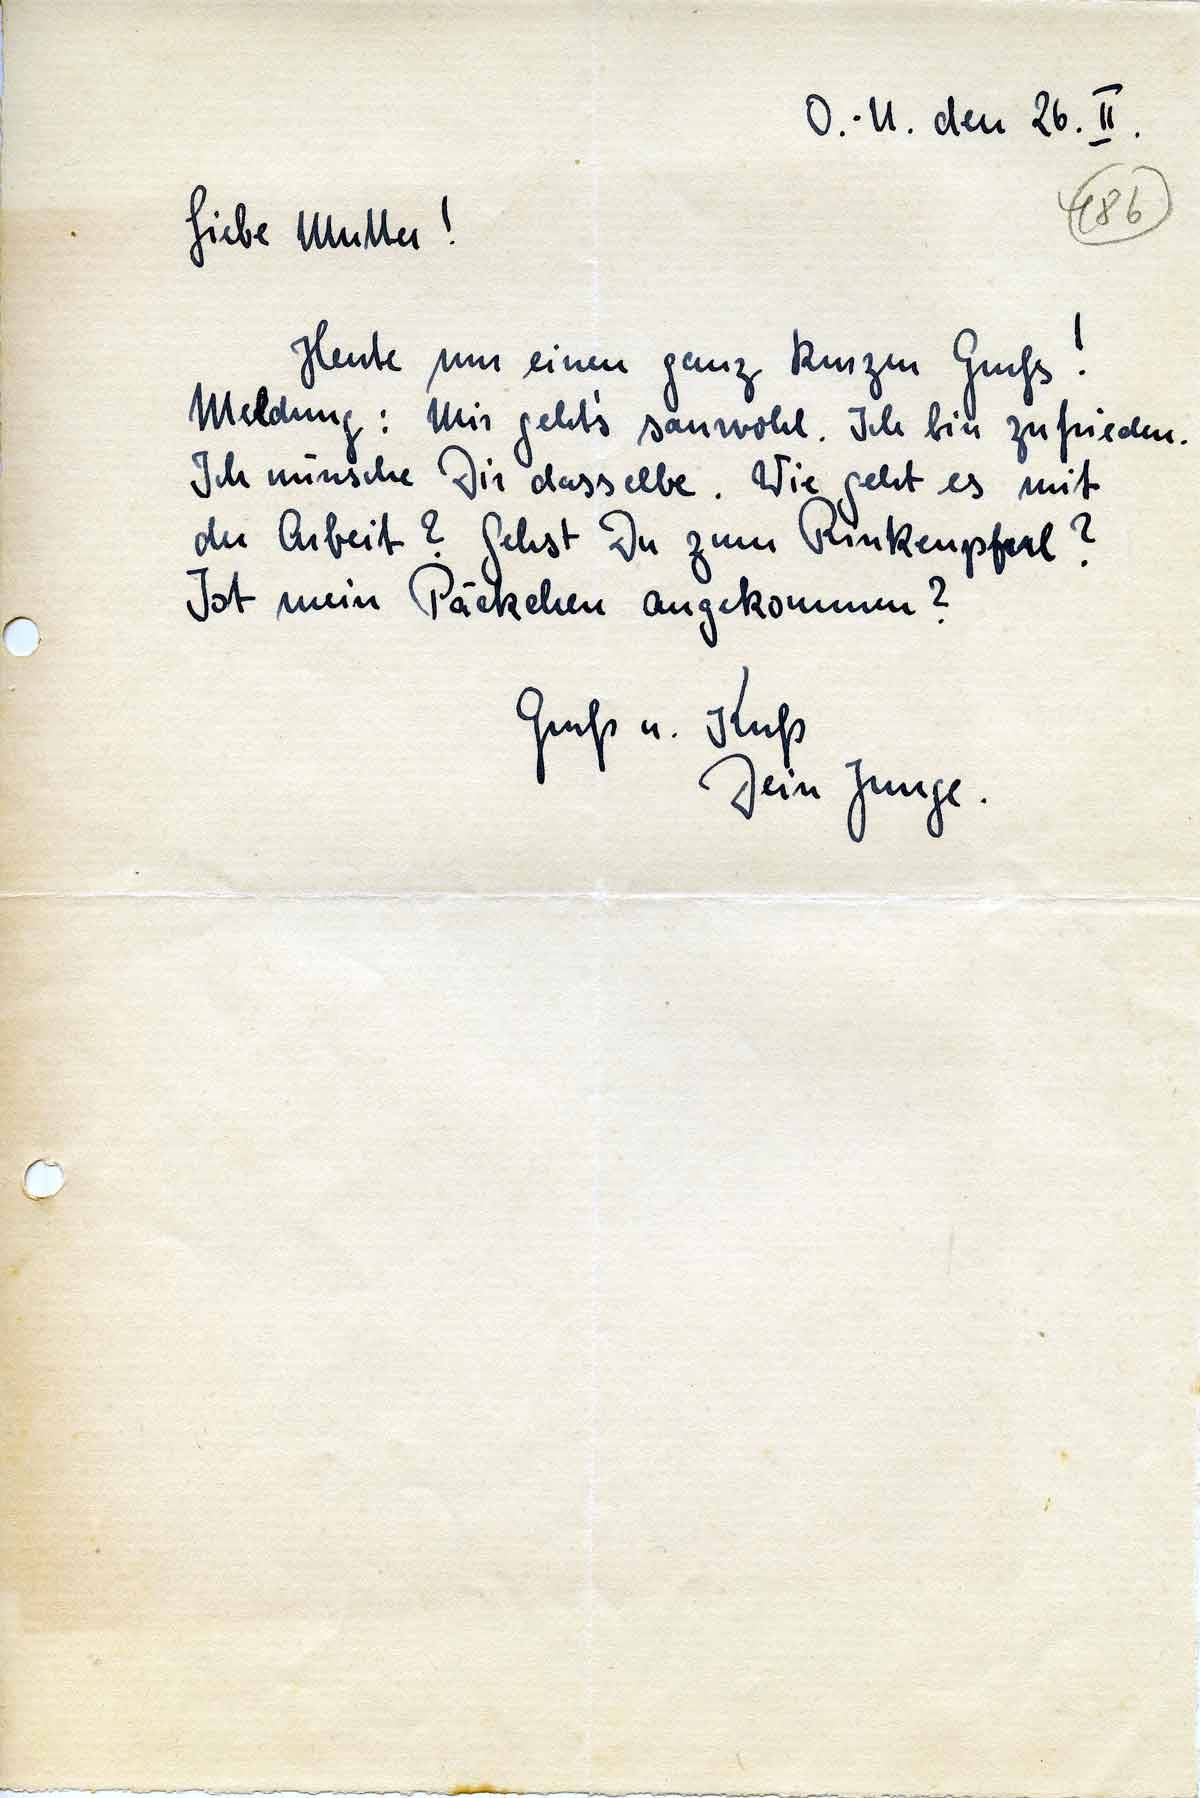 O.-U. den 26. II.
186
Liebe Mutter!
Heute nur einen ganz kurzen Gruß!
Meldung: Mir geht's sauwohl. Ich bin zufrieden.
Ich wünsche Dir dasselbe. Wie geht es mit
der Arbeit? Gehst Du zum Rinkenpfuhl?
Ist mein Päckchen angekommen?
Gruß u. Kuß
Dein Junge.